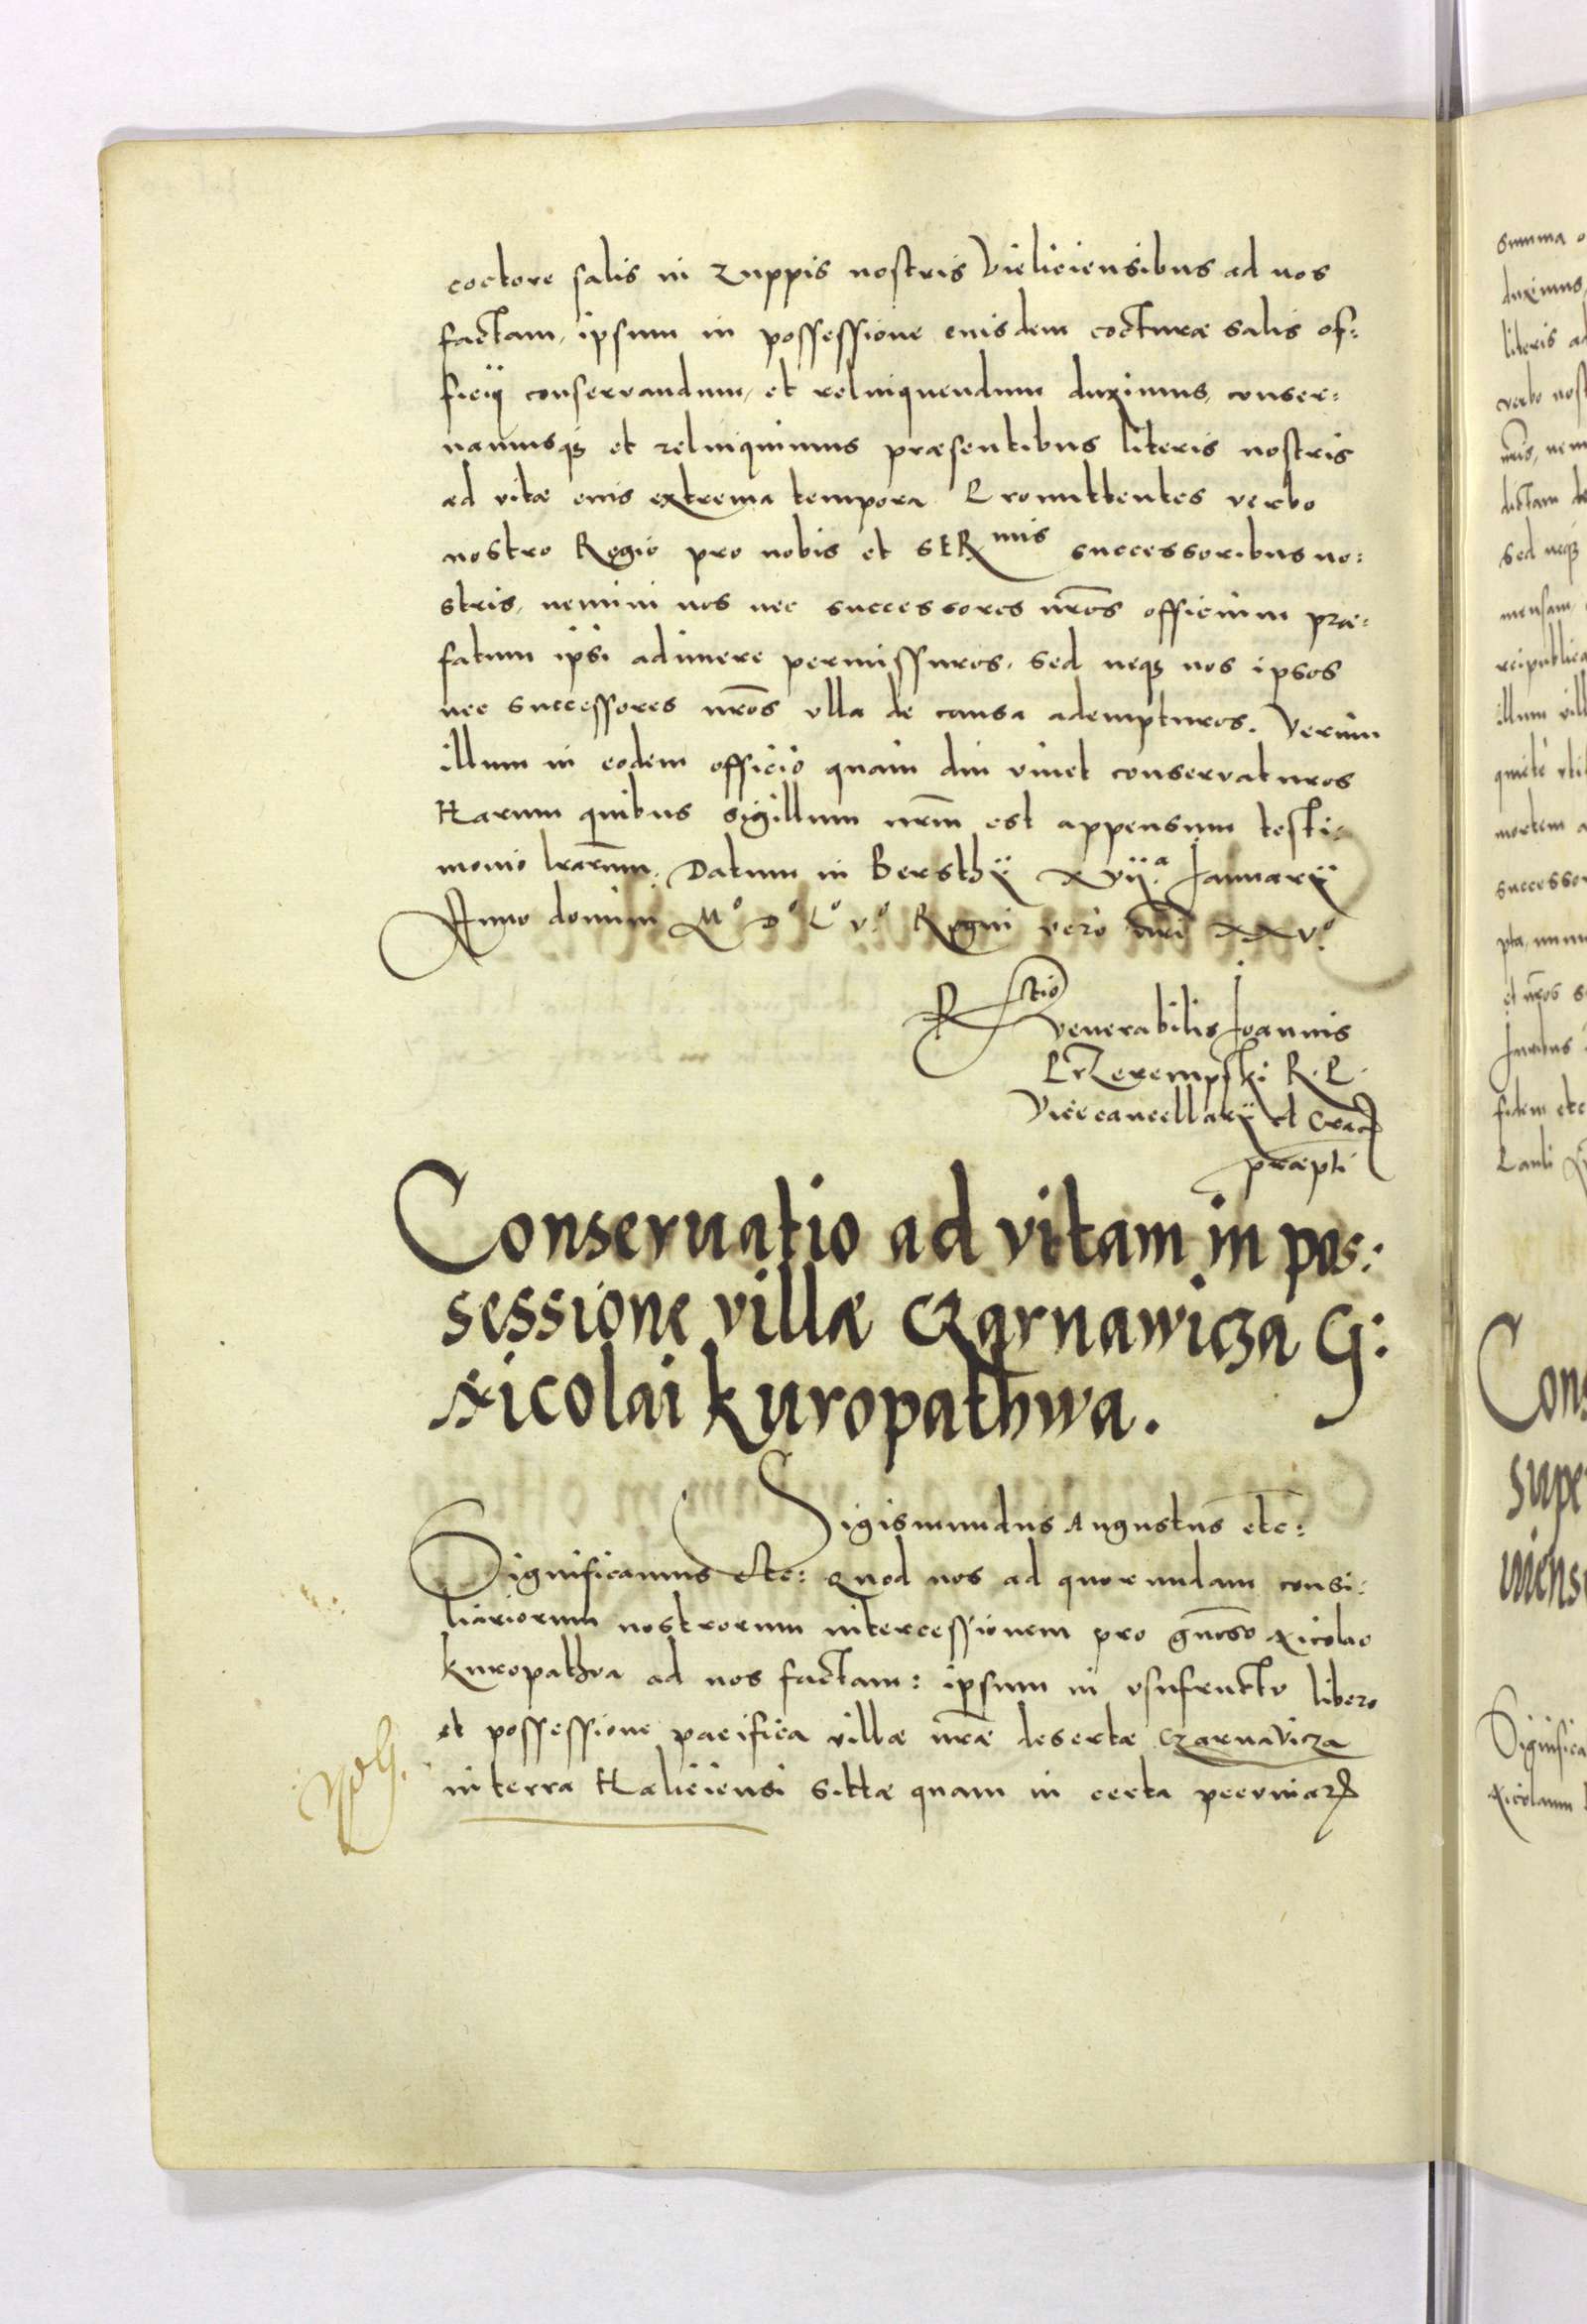 coctore salis in Zuppis nostris Vieliciensibus ad nos
factam, ipsum in possessione euisdem cocturæ salis of:
ficij conservandum, et relinquendum duximus, conser:
uamusq3 et relinquimus præsentibus literis nostris
ad vitæ eius extrema tempora Promittentes verbo
nostro Regio pro nobis et SERmis successoribus no:
stris, nemini nos nec successores nr̃os officium præ:
fatum ipsi adimere permissuros, sed neq3 nos ipsos
nec successores nr̃os vlla de causa adempturos. Verum
illum in eodem officio quam diu viuet conservaturos
Harum quibus sigillum nr̃m est appensum testi:
monio lr̃arum. Datum in Bersthÿ xvij.a Januarÿ
Anno domini Mo Do Lo vo. Regni vero nr̃i xxvo.
Rtio
venerabilis Joannis
Przerempski R. P.
Vicecancellarÿ et Crac
præpti
Conseruatio ad vitam in pos:
sessione villæ Czarnawicza G:
Nicolai Kuropathwa.
Sigismundus Augustus etc:
Significamus etc: Quod nos ad quorundam consi:
liariorum nostrorum intercessionem pro gñoso Nicolao
Kuropathva ad nos factam: ipsum in vsufructu libero
et possessione pacifica villæ nr̃æ desertæ Czarnavicza
in terra Haliciensi sittæ quam in certa pecuniar
summa
duximus,
literis ad
verbo nost
nr̃os, nem
dictam de
sed neq3
mensam,
reipublica
illum vill
quiete vti
mortem a
successor
pta, nun
et nr̃os s
Juribus
fidem etc
Pauli
Cons
supe
uiens
Significa
Nicolaum